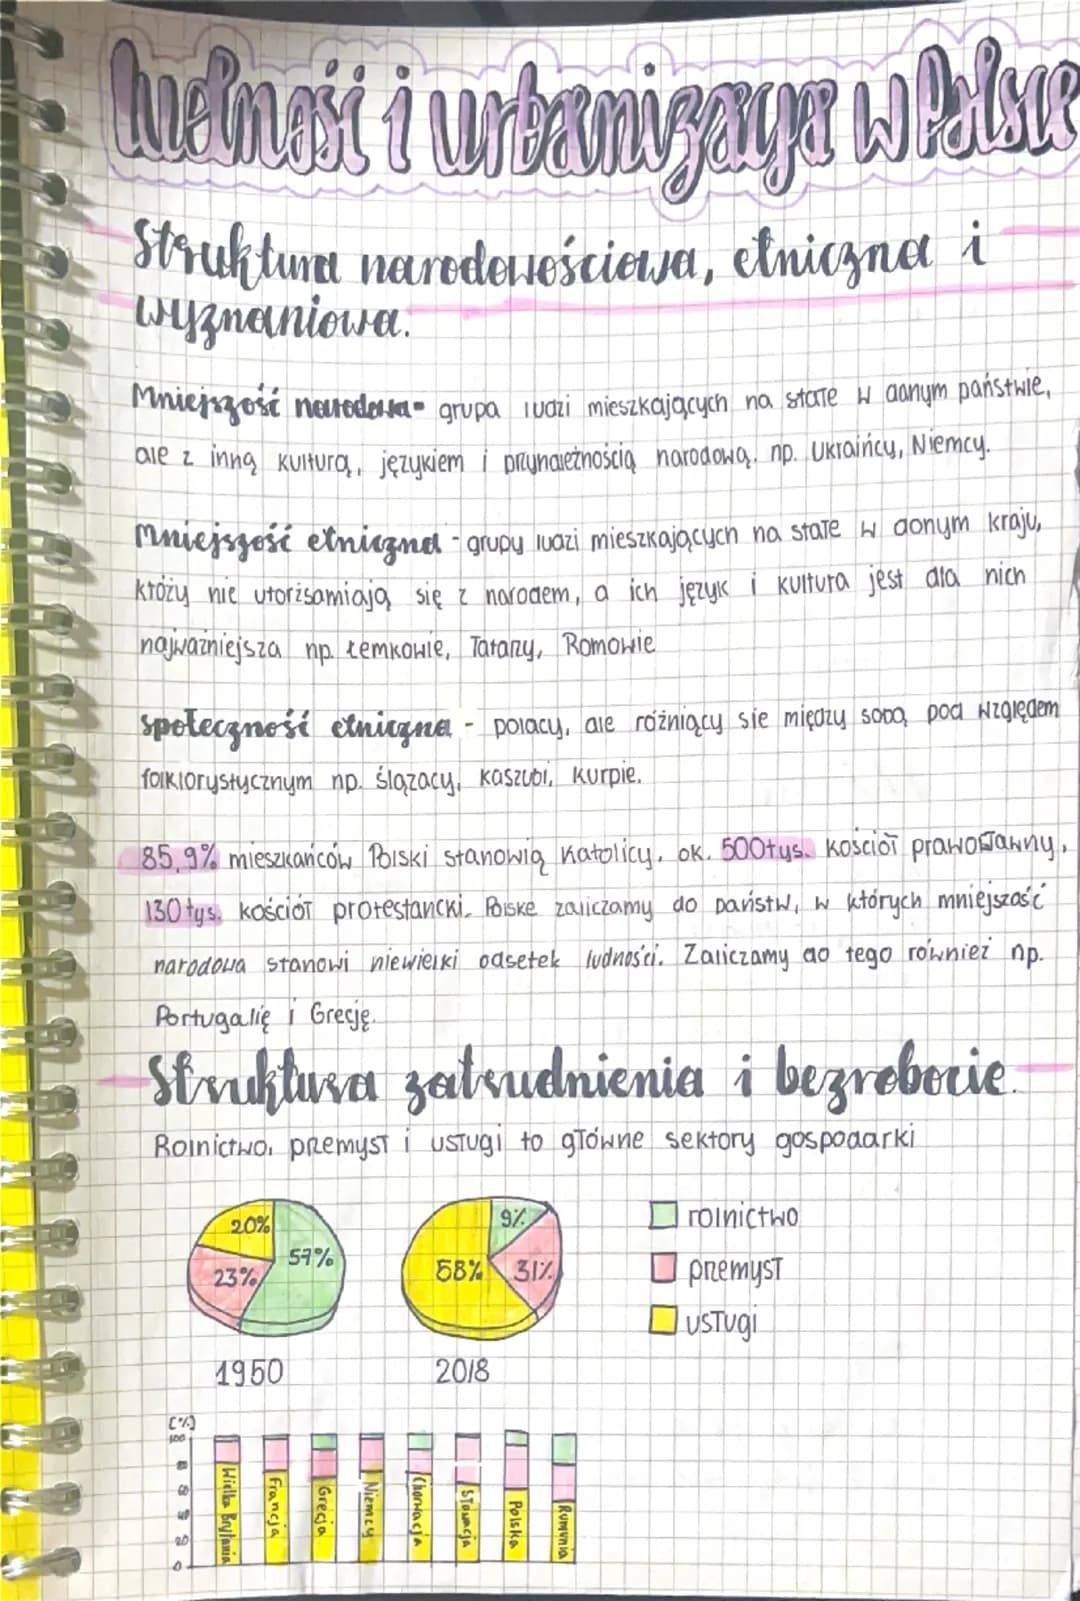 ludność i urbanizacja w Polsce
Struktura narodowościowa, etniczna i
wyznaniowa.
Mniejszość narodowa - grupa ludzi mieszkających na stałe w danym państwie,
ale z inną kulturą, językiem i przynależnością narodową. np. Ukraińcy, Niemcy.
Mniejszość etniczna - grupy ludzi mieszkających na stałe w danym kraju,
którzy nie utożsamiają się z narodem, a ich język i kultura jest dla nich
najważniejsza np. Łemkowie, Tatarzy, Romowie
społeczność etniczna - polacy, ale różniący sie między sobą pod względem
folklorystycznym np. ślązacy, kaszubi, kurpie.
85,9% mieszkańców Polski stanowią katolicy, ok. 500tys. kościół prawosławny,
130tys. kościół protestancki. Polske zaliczamy do państw, w których mniejszość
narodowa stanowi niewielki odsetek ludności. Zaliczamy do tego również np.
Portugalię i Grecję.
Struktura zatrudnienia i bezrobocie.
Rolnictwo, przemysł i usługi to główne sektory gospodarki
20% 57% 23%
9% 58% 31%
rolnictwo
przemysł
usługi
1950 2018
[%]
100
80
60
40
20
0
Wielka Brytania
Francja
Grecja
Niemcy
Chorwacja
Słowacja
Polska
Rumunia